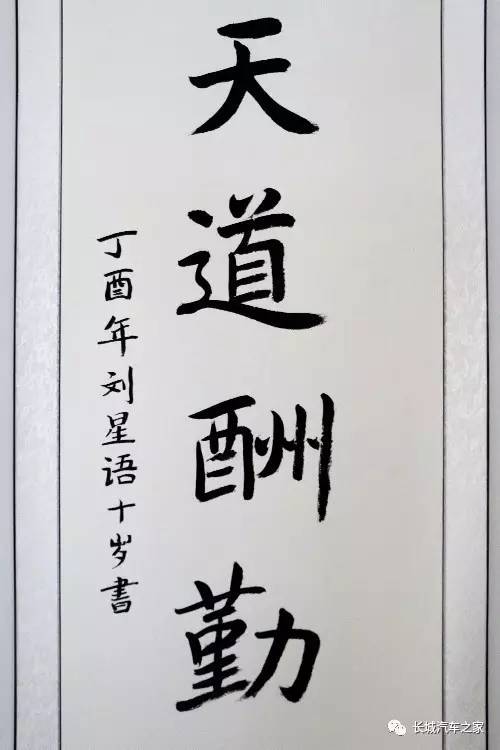 天道酬勤
丁酉年刘星语十岁書
长城汽车之家